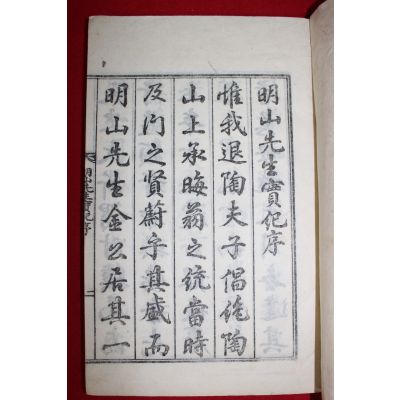 明山先生實紀序
惟我退陶夫子倡絶陶
山上承晦翁之統當時
及門之賢蔚乎其盛而
明山先生金公居其一
明山先生實紀序
一